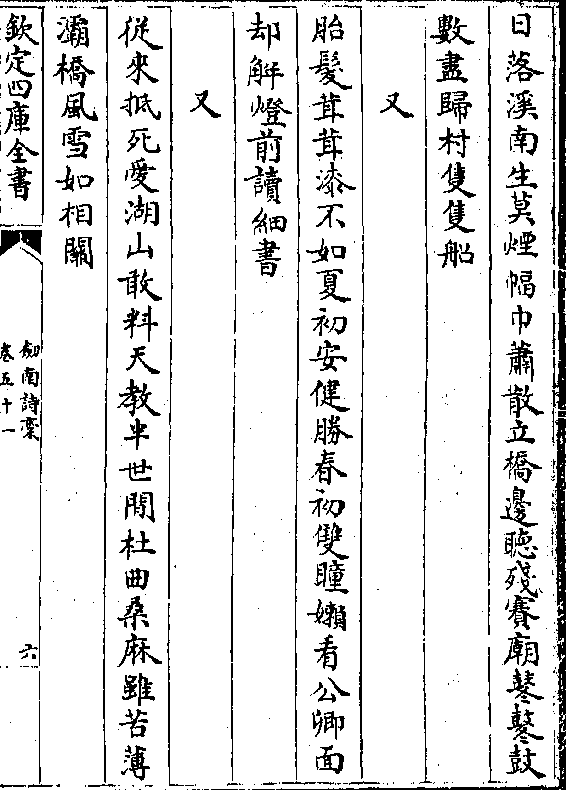 日落溪南生莫煙幅巾蕭散立橋邊聽殘賽廟鼕鼕鼓
數盡歸村隻隻船
又
胎髪茸茸漆不如夏初安健勝春初雙瞳嬾看公卿面
却解燈前讀細書
又
從來抵死愛湖山敢料天教半世閒杜曲桑麻雖苦薄
灞橋風雪如相關
欽定四庫全書
劒南詩稾
卷五十一
六